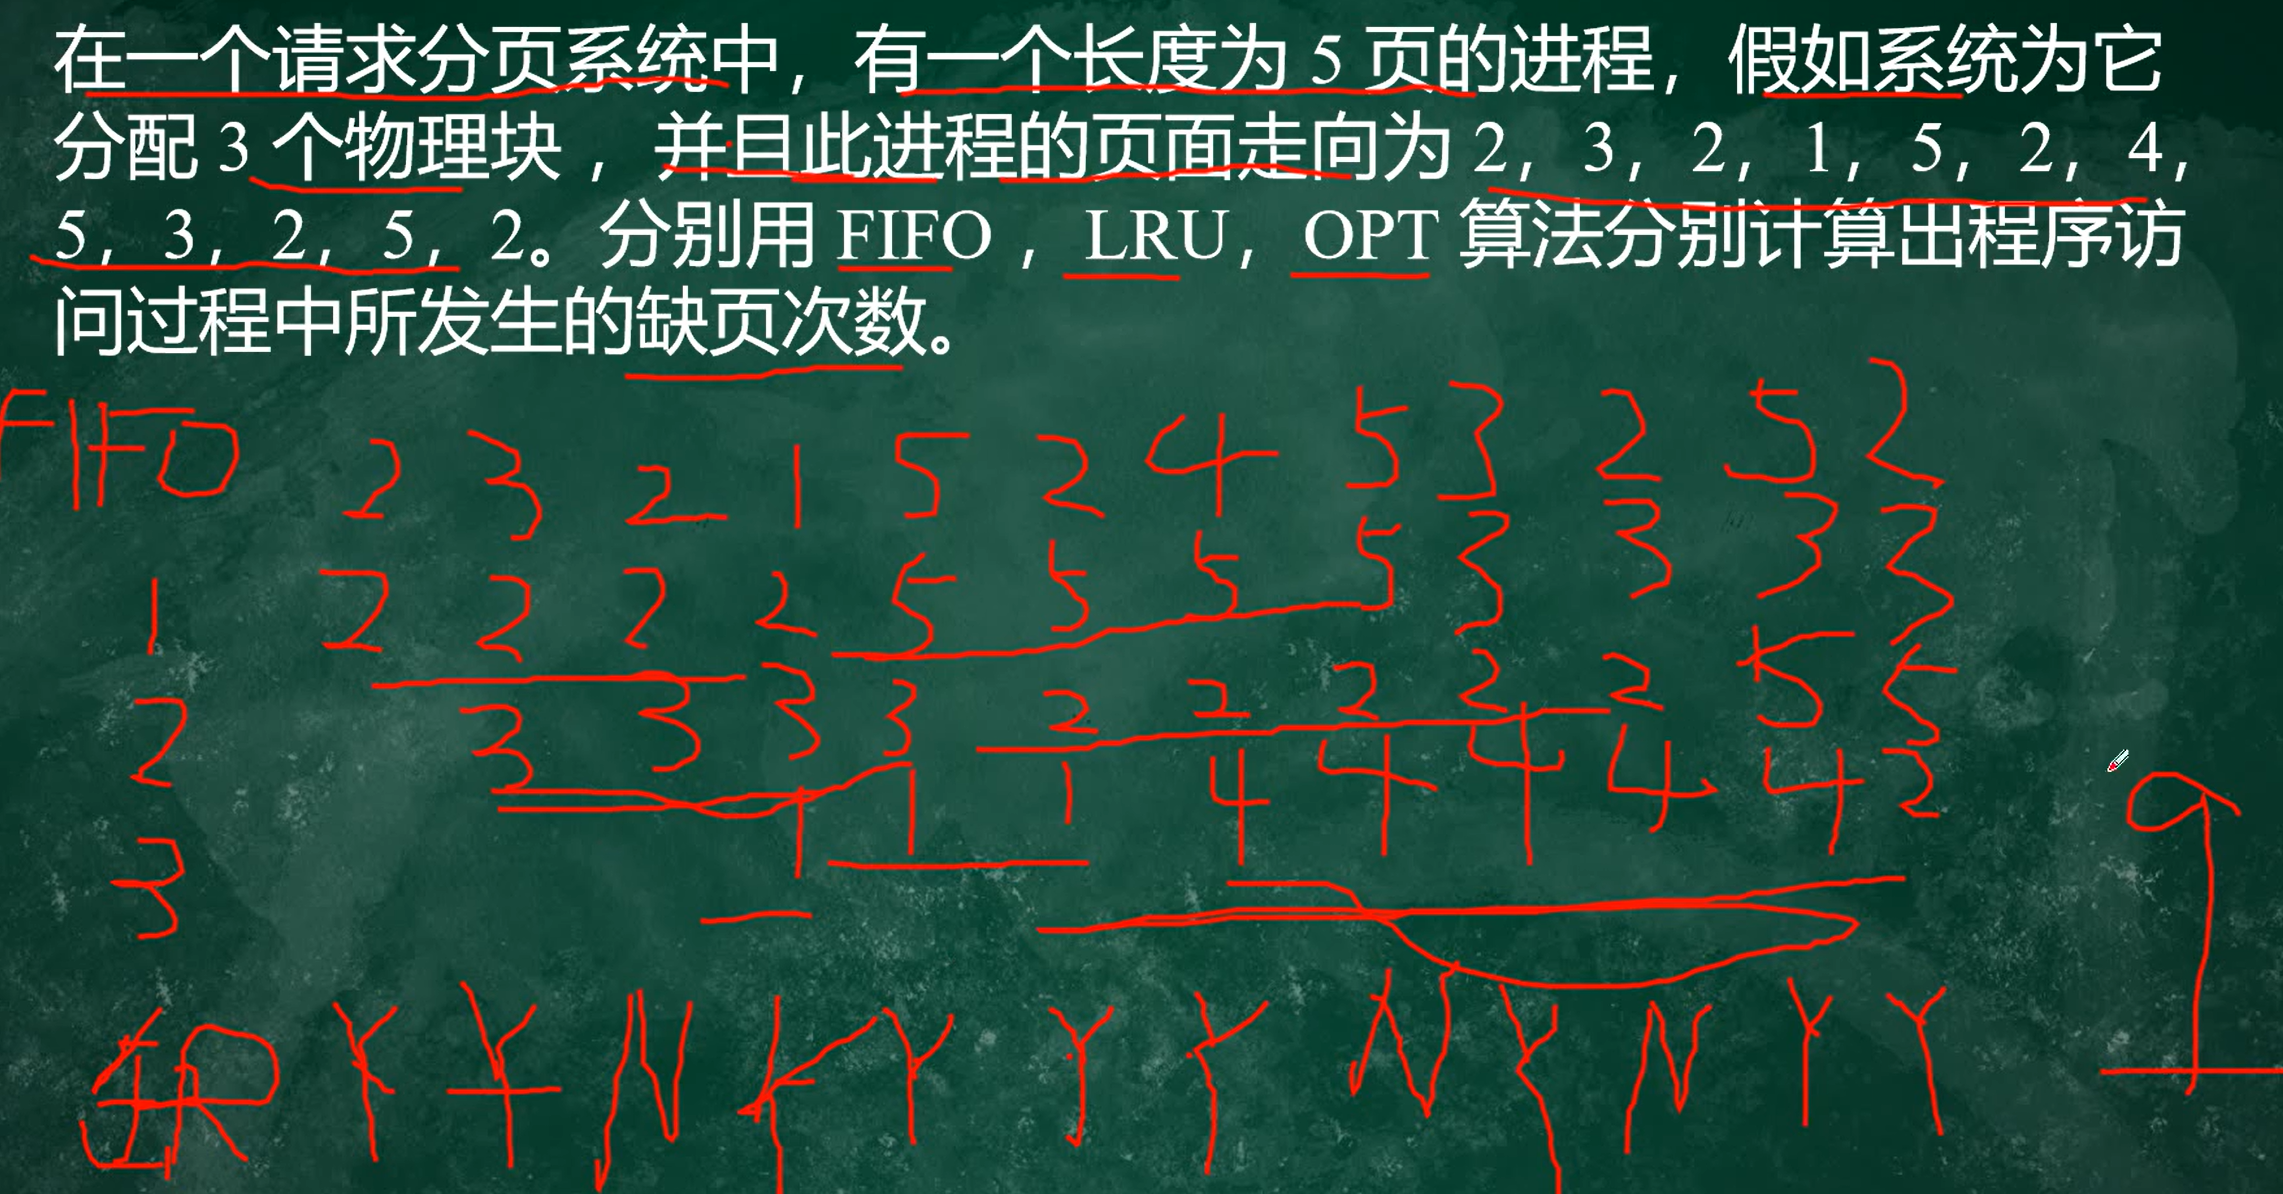 在一个请求分页系统中，有一个长度为 5 页的进程，假如系统为它
分配 3 个物理块 ，并且此进程的页面走向为 2，3，2，1，5，2，4，
5，3，2，5，2。分别用 FIFO ，LRU，OPT 算法分别计算出程序访
问过程中所发生的缺页次数。
FIFO 2 3 2 1 5 2 4 5 3 2 5 2
1 2 2 2 2 5 5 5 5 3 3 3 3
2 3 3 3 3 2 2 2 2 2 5 5
3 1 1 1 4 4 4 4 4 2
缺 Y Y N Y Y Y Y N Y N Y Y
9